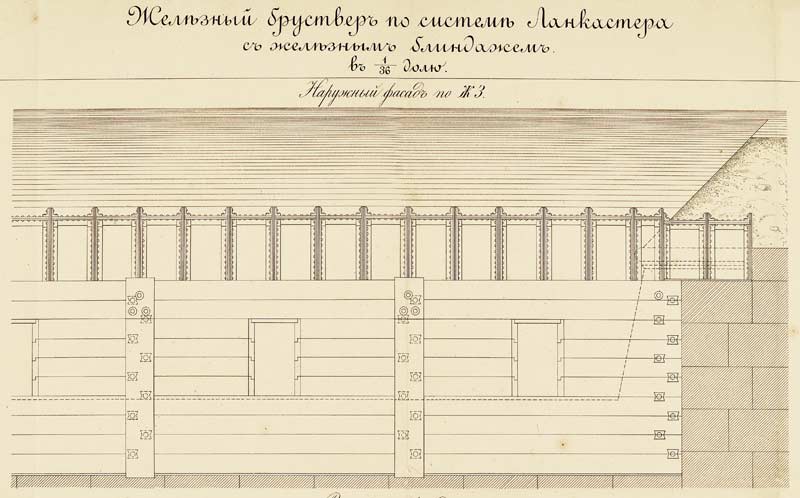 Желѣзный брустверъ по системѣ Ланкастера
съ желѣзнымъ блиндажемъ.
въ 1/36 долю.
Наружный фасадъ по ЖЗ.